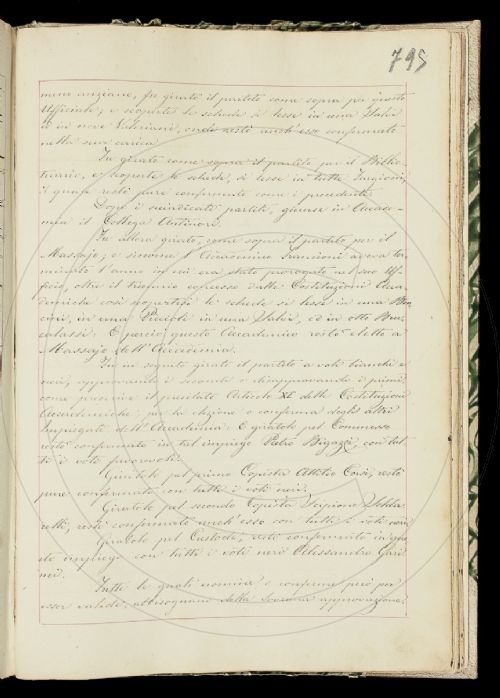 795
meno anziano, fu girato il partito come sopra per questo
Ufficiale; e scoperte le schede si lesse in una Salvi
ed in nove Valeriani, onde restò anch'esso confermato
nella sua carica.
Fu girato come sopra il partito per il Biblio-
tecario, e scoperte le schede, si lesse in tutte
il quale restò pure confermato come i precedenti.
Dopo i suindicati partiti, giunse in Accade-
mia il Collega Antinori.
Fu allora girato, come sopra il partito per il
Massajo; e siccome l'Accademico Francioni aveva ter-
minato l'anno in cui era stato prorogato nel suo Uf-
ficio, oltre il triennio espresso dalle Costituzioni Acca-
demiche così scoperte le schede si lesse in una
in una in una Salvi, ed in otto
E perciò questo Accademico restò eletto a
Massajo dell'Accademia.
Fu in seguito girato il partito a voti bianchi e
neri, approvando i secondi e disapprovando i primi,
come prescrive il precitato Articolo XI delle Costituzioni
Accademiche per la elezione o conferma degli altri
Impiegati dell'Accademia. E giratolo pel Commesso
restò confermato in tal impiego Pietro Bigazzi, con tut-
ti i voti favorevoli.
Giratolo pel primo Copista Attilio Corsi, restò
pure confermato con tutti i voti neri.
Giratolo pel secondo Copista Scipione
restò confermato anch'esso con tutti i voti neri
Giratolo pel Custode, restò confermato in que-
sto impiego con tutti i voti neri Alessandro
Tutte le quali nomine e conferme però per
esser valide, abbisognano della Sovrana approvazione.